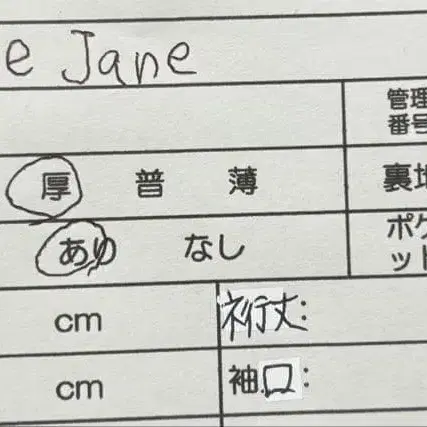 e Jane
管理
番号
厚 普 薄 裏地
あり なし ポケ
ット
cm 裄丈:
cm 袖口: